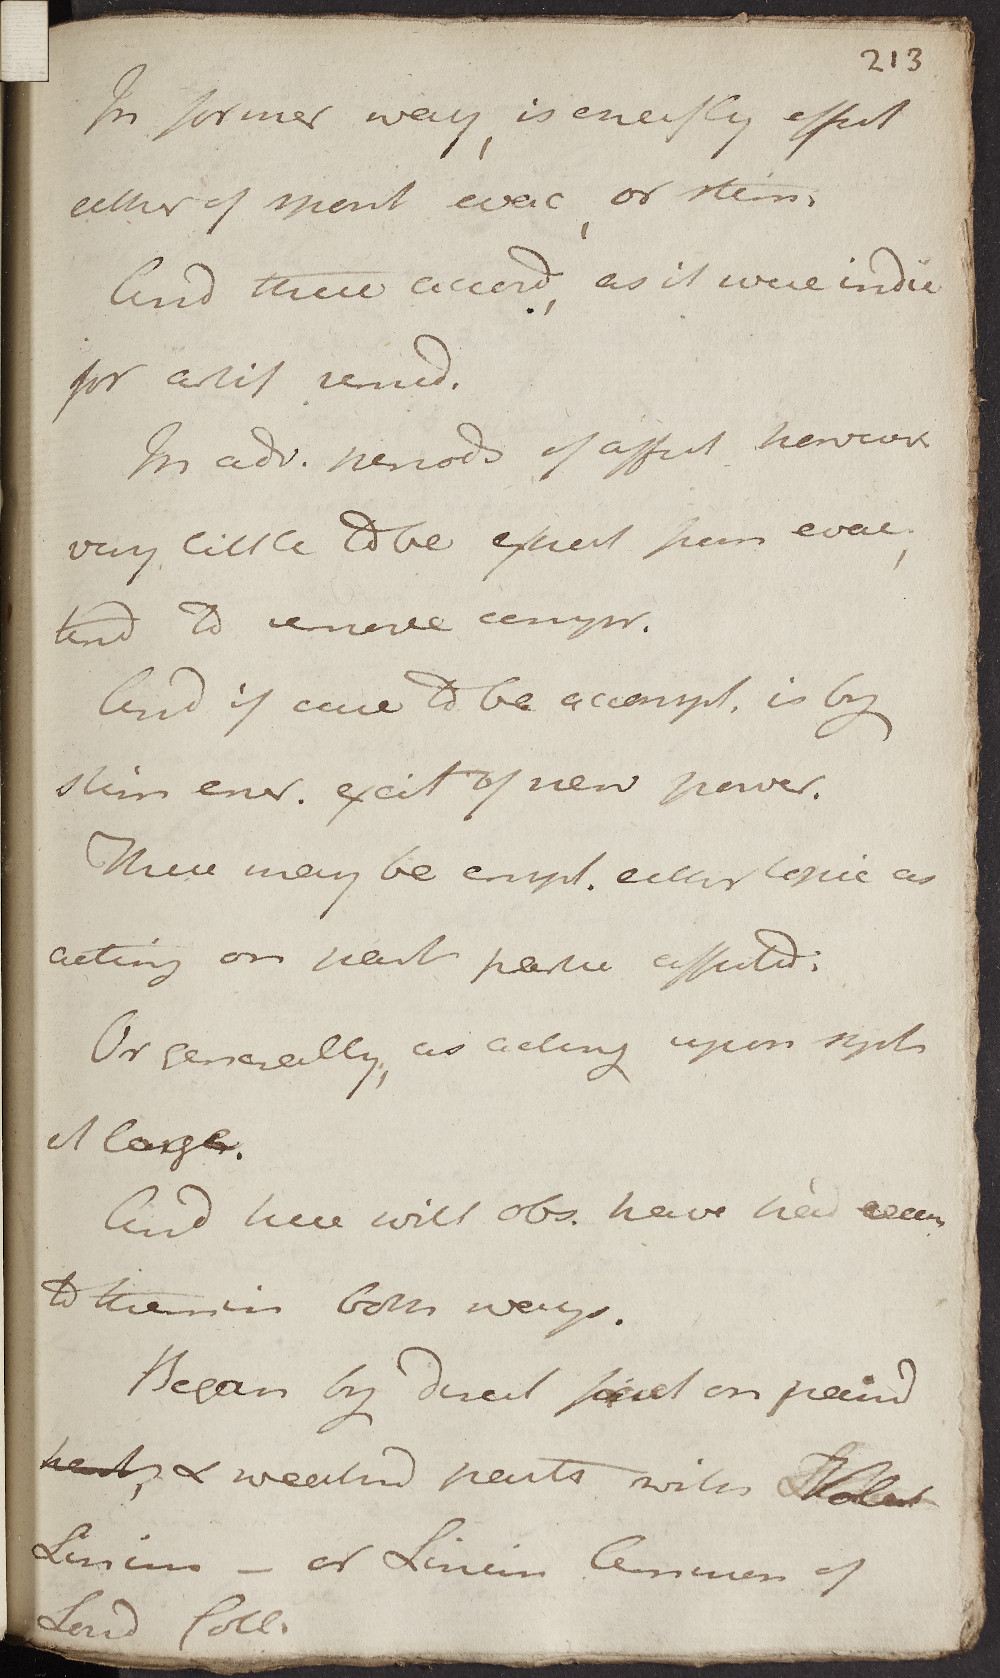 213
In former way, is cheifly effect
either of spont evac, or stim.
And these accord, as it were indic
for artif remed.
In adv. periods of affect however
very little to be expect from evac,
tend to remove compr.
And if cure to be accompl. is by
stim ener. excit of new power.
These may be empl. either topic as
acting on part particu affected.
Or generally, as acting upon syst
at large.
And here will obs. have had recour
to them in both ways.
Began by direct frict on pain'd
& weaken'd parts with Volat
Linim — or Linim Ammon of
Lond Coll.